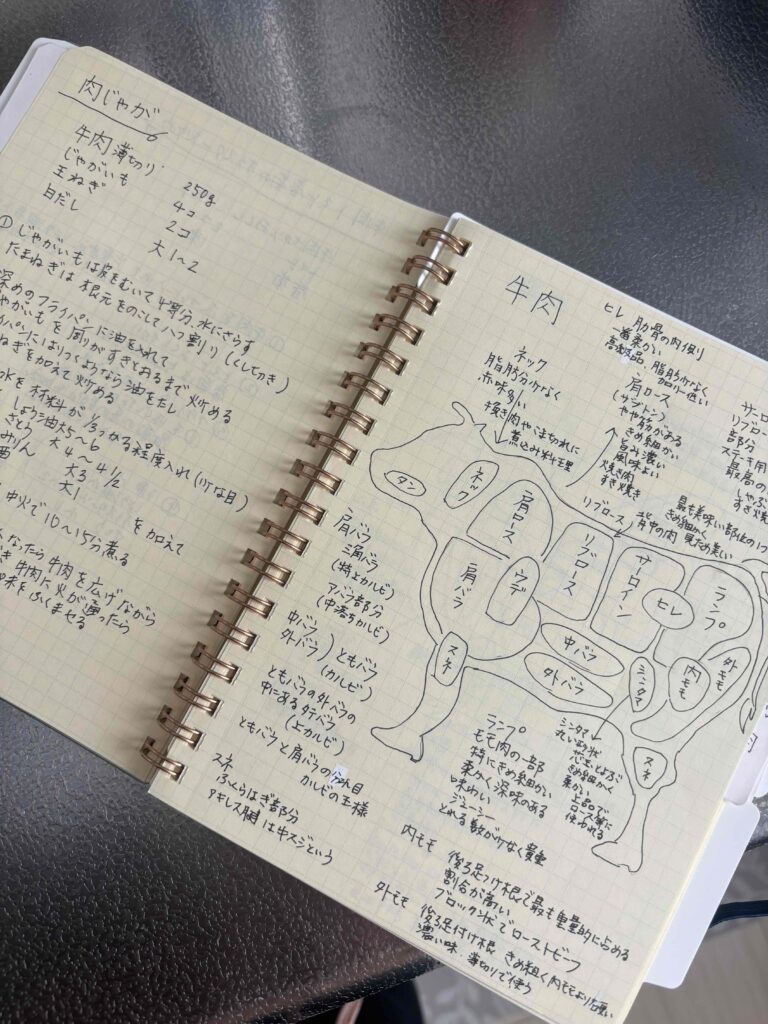 肉じゃが
牛肉薄切り 250g
じゃがいも 4コ
玉ねぎ 2コ
白だし 大1〜2
① じゃがいもは皮をむいて4等分、水にさらす
たまねぎは根元をのこして八ツ割り(くし切り)
深めのフライパンに油を入れて
じゃがいもを周りがすきとおるまで炒める
イパンにはりつくようなら油をたし
ねぎを加えて炒める
水を材料が1/3つかる程度入れ(1/7な目)
しょう油大5〜6
さとう 大4〜4 1/2
みりん 大3
酒 大1
を加えて
中火で10〜15分煮る
なったら牛肉を広げながら
牛肉に火が通ったら
味をふくませる
牛肉
ヒレ 肋骨の内側
一番柔かい
高級品、脂肪少なく
カロリー低い
ネック
脂肪分少なく
赤味多い
挽き肉やこま切れに
煮込み料理
肩ロース
(ザブトン)
やや筋がある
きめ細かい
旨み濃い
風味よい
焼き肉
すき焼き
サーロ
リブロー
部分
ステーキ用
最高の
しゃぶ
すき焼
リブロース
背中の肉
最も美味い部位の1つ
きめ細かく
見ため美しい
タン
ネック
肩ロース
リブロース
サーロイン
ランプ
ヒレ
肩バラ
ウデ
中バラ
外バラ
シンタマ
内モモ
外モモ
スネ
スネ
肩バラ
三角バラ
(特上カルビ)
アバラ部分
(中落ちカルビ)
中バラ
外バラ ) ともバラ
(カルビ)
ともバラの外バラの
中にあるタテバラ
(上カルビ)
ともバラと肩バラの分れ目
カルビの王様
スネ
ふくらはぎ部分
アキレス腱は牛スジという
ランプ
モモ肉の一部
特にきめ細かい
柔かく深味のある
味わい
ジューシー
とれる数が少なく貴重
シンタマ
丸い形状
きめ細かく
柔かい
上品で
ロース等に
使われる
内モモ 後ろ足つけ根で最も重量的に占める
割合が高い
ブロック状でローストビーフ
外モモ 後ろ足付け根 きめ粗く内モモより固い
濃い味・薄切りで使う